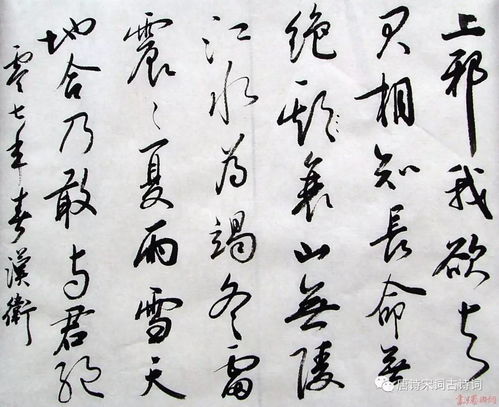 上邪我欲与
君相知長命無
絶衰山無陵
江水为竭冬雷
震々夏雨雪天
地合乃敢与君絶
零七年春漢衛
唐诗宋词古诗词